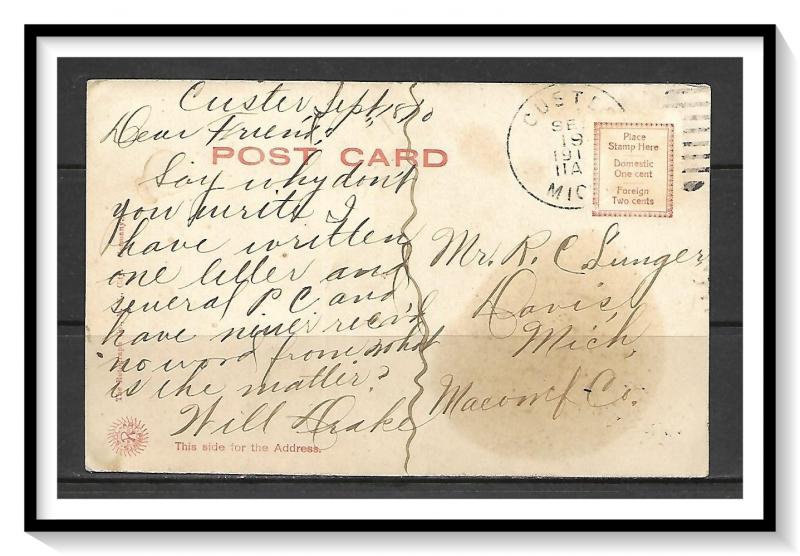 Custer, Sept 18, 10
Dear Friend:
POST CARD
Say why don't
you write I
have written
one letter and
several P C and
have never rec'vd
no word from what
is the matter?
Will Drake
This side for the Address.
CUSTE
SE
19
191
11A
MIC
Place
Stamp Here
Domestic
One cent
Foreign
Two cents
Mr. R. C. Lunger
Davis,
Mich,
Macomb Co.